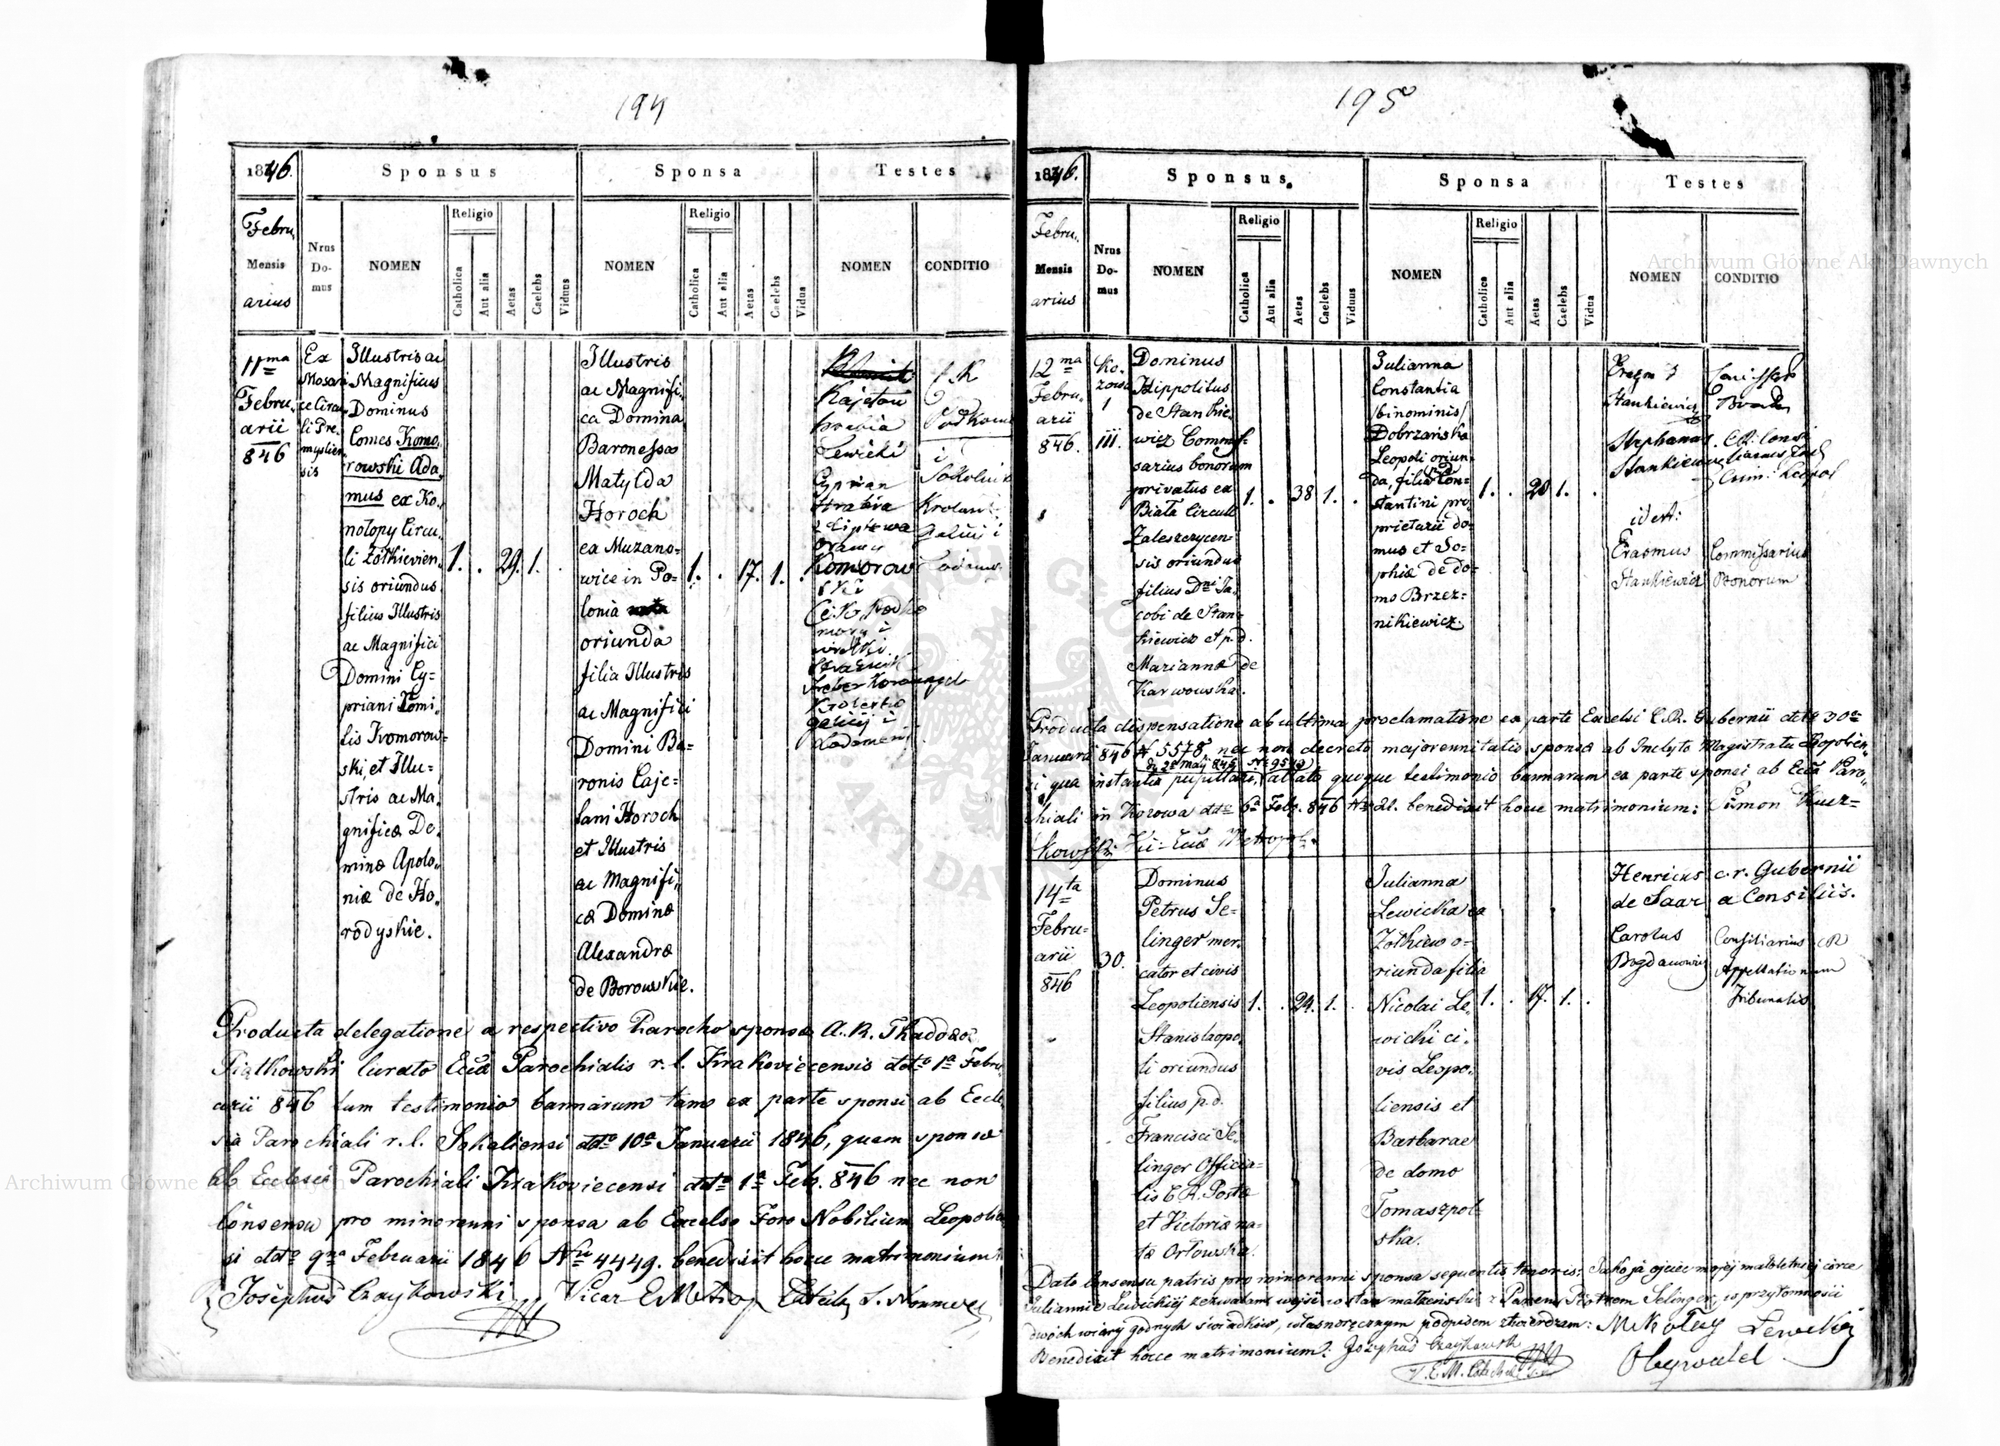 194
1846.
Sponsus
Sponsa
Testes
Febru
Mensis
arius
Nrus
Do-
mus
NOMEN
Religio
Catholica
Aut alia
Aetas
Caelebs
Viduus
NOMEN
Religio
Catholica
Aut alia
Aetas
Caelebs
Vidua
NOMEN
CONDITIO
11ma
Febru
arii
846
Ex
li Pre
myslien
sis
Illustris ac
Magnificus
Dominus
Comes Komo
rowski Ada
mus ex Ko
notopy Circu
li Zolkievien
sis oriundus
filius Illustris
ac Magnifici
Domini Cy-
priani Comi
tis Komorow-
ski, et Illu-
stris ac Ma
gnificæ Do
minæ Apolo
niæ de Ho
rodyskie.
1. . 29. 1. .
Illustris
ac Magnifi
ca Domina
Baronessa
Matylda
Horoch
ex Muzano-
wice in Po-
lonia
oriunda
filia Illustris
ac Magnifici
Domini Ba-
ronis Caje-
tani Horoch
et Illustris
ac Magnifi
cæ Dominæ
Alexandræ
de Borowskie.
1. . 17. 1. .
Kajetan
hrabia
Lewicki
Cyprian
Hrabia
Komorow
Producta delegatione a respectivo Parocho sponsæ A. R. Thaddæo
Piątkowski Curato Eccl Parochialis r. l. Krakoviecensis ddto 1a Febru
arii 846 tum testimonio bannorum tam ex parte sponsi ab Eccle
sia Parochiali r. l. Sokaliensi ddto 10a Januarii 1846, quam sponsæ
ab Ecclesia Parochiali Krakoviecensi ddto 1a Feb. 846 nec non
Consensu pro minorenni sponsa ab Excelso Foro Nobilium Leopolien
si ddto 9na Februarii 1846 Nro 4449. benedixit hocce matrimonium
Josephus Czaykowski Vicar E Metrop
195
1846.
Sponsus
Sponsa
Testes
Febru
Mensis
arius
Nrus
Do-
mus
NOMEN
Religio
Catholica
Aut alia
Aetas
Caelebs
Viduus
NOMEN
Religio
Catholica
Aut alia
Aetas
Caelebs
Vidua
NOMEN
CONDITIO
12ma
Febru
arii
846.
1
111.
Dominus
Hippolitus
de Stankie
wicz Commis-
sarius bonorum
privatus ex
Biała Circuli
Zaleszczycen-
sis oriundus
filius Dni Ja
cobi de Stan-
kiewicz et p. d.
Mariannæ de
Karwowska.
1. . 38 1. .
Julianna
Constantia
/binominis/
Dobrzańska
Leopoli oriun
da, filia Con-
stantini pro
prietarii do-
mus et So-
phiæ de do-
mo Brzez-
nikiewicz.
1. . 20 1. .
Stankiewicz
Stephanus
Stankiewicz
id est:
Erasmus
Stankiewicz
Commissarius
Bonorum
Producta dispensatione ab ultima proclamatione ex parte Excelsi C. R. Gubernii ddto 30a
Januarii 846 N 5578, nec non decreto majorennitatis sponsæ ab Inclyto Magistratu Leopolien
si qua instantia pupillari, allato quoque testimonio bannorum ex parte sponsi ab Eccla Paro
chiali in Kozowa ddto 6a Feb. 846 Nro 21. benedixit hocce matrimonium: Simon Kucz-
kowski
14ta
Febru-
arii
846
30.
Dominus
Petrus Se-
linger mer
cator et civis
Leopoliensis
Stanislaopo
li oriundus
filius p. d.
Francisci Se
linger Officia-
lis C. R. Postæ
et Victoriæ na-
tæ Orłowska.
1. . 24. 1. .
Julianna
Lewicka ex
Żółkiew o-
riunda filia
Nicolai Le
wicki ci
vis Leopo
liensis et
Barbarae
de domo
Tomaszpol
ska.
1. . 17. 1. .
Henricus
de Saar
c. r. Gubernii
a Consiliis.
Carolus
Bogdanowicz
Consiliarius CR
Appellationum
Tribunalis
Dato Consensu patris pro minorenni sponsa sequentis tenoris: Jako ja ojciec mojej małoletniej córce
Juliannie Lewickiej zezwalam wejść w stan małżeński z Panem Piotrem Selinger, w przytomności
dwóch wiary godnych świadków, własnoręcznym podpisem stwierdzam: Mikołay Lewicki
Benedixit hocce matrimonium: Josephus Czaykowski
Obywatel
Archiwum Główne Akt Dawnych
Archiwum Główne Akt Dawnych